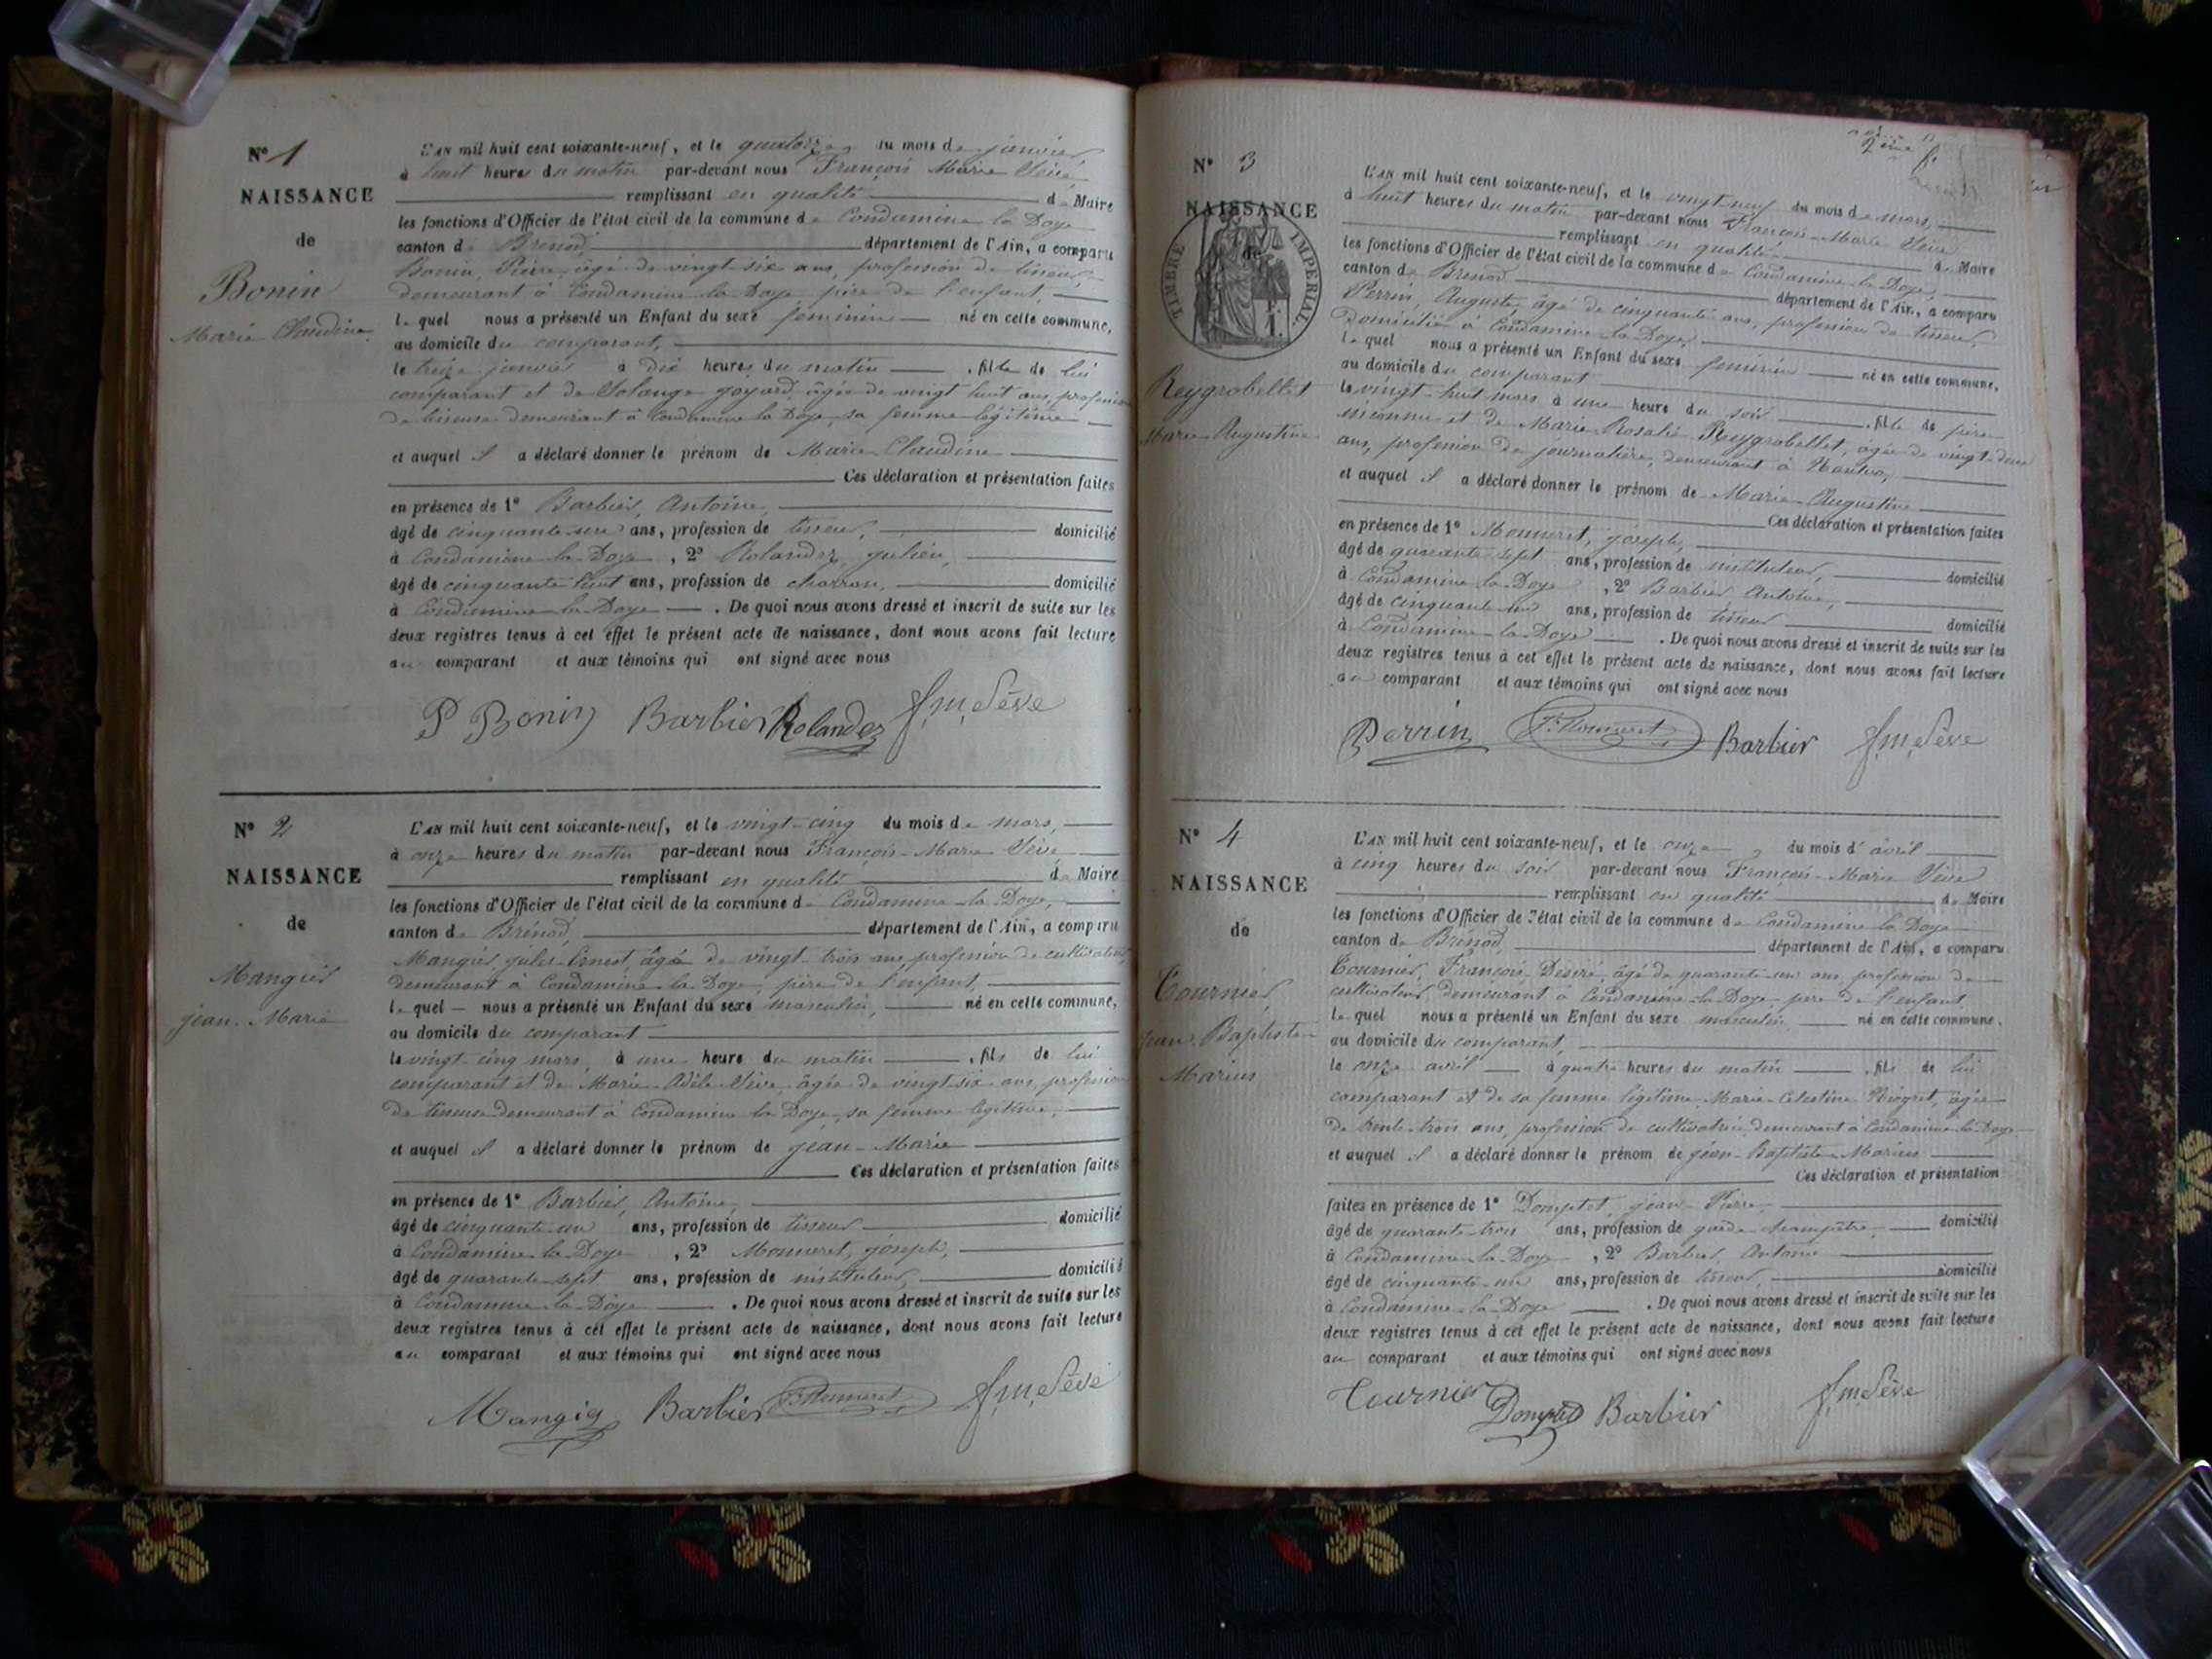 N° 1
NAISSANCE
de
Bonin
Marie Claudine
L'AN mil huit cent soixante-neuf, et le quatorze du mois de janvier,
à huit heures du matin par-devant nous François Marie Sève
remplissant en qualité de Maire
les fonctions d'Officier de l'état civil de la commune de Condamine la Doye
canton de Brenod, département de l'Ain, a comparu
Bonin, Pierre, âgé de vingt-six ans, profession de tisseur,
demeurant à Condamine la Doye, père de l'enfant,
lequel nous a présenté un Enfant du sexe féminin né en cette commune,
au domicile du comparant,
le treize janvier à dix heures du matin, fille de lui
comparant et de Solange Goyard, âgée de vingt huit ans, profession
de tisseuse demeurant à Condamine la Doye, sa femme légitime
et auquel il a déclaré donner le prénom de Marie Claudine
Ces déclaration et présentation faites
en présence de 1° Barbier, Antoine,
âgé de cinquante un ans, profession de tisseur, domicilié
à Condamine la Doye, 2° Rolandez, Julien,
âgé de cinquante huit ans, profession de charron, domicilié
à Condamine la Doye. De quoi nous avons dressé et inscrit de suite sur les
deux registres tenus à cet effet le présent acte de naissance, dont nous avons fait lecture
au comparant et aux témoins qui ont signé avec nous
P Bonin Barbier Rolandez f.m. Sève
N° 2
NAISSANCE
de
Mangier
Jean-Marie
L'AN mil huit cent soixante-neuf, et le vingt-cinq du mois de mars,
à onze heures du matin par-devant nous François-Marie Sève
remplissant en qualité de Maire
les fonctions d'Officier de l'état civil de la commune de Condamine la Doye,
canton de Brénod, département de l'Ain, a comparu
Mangier, Jules-Ernest, âgé de vingt-trois ans, profession de cultivateur,
demeurant à Condamine la Doye, père de l'enfant,
lequel nous a présenté un Enfant du sexe masculin, né en cette commune,
au domicile du comparant
le vingt-cinq mars, à une heure du matin, fils de lui
comparant et de Marie-Adèle Sève, âgée de vingt-six ans, profession
de tisseuse demeurant à Condamine la Doye, sa femme légitime,
et auquel il a déclaré donner le prénom de Jean-Marie
Ces déclaration et présentation faites
en présence de 1° Barbier, Antoine,
âgé de cinquante-un ans, profession de tisseur domicilié
à Condamine la Doye, 2° Monneret, Joseph,
âgé de quarante-sept ans, profession de instituteur, domicilié
à Condamine-la-Doye. De quoi nous avons dressé et inscrit de suite sur les
deux registres tenus à cet effet le présent acte de naissance, dont nous avons fait lecture
au comparant et aux témoins qui ont signé avec nous
Mangig Barbier J. Monneret f.m. Sève
2ème f.
N° 3
NAISSANCE
de
TIMBRE IMPÉRIAL
Reygrobellet
Marie-Augustine
L'AN mil huit cent soixante-neuf, et le vingt-neuf du mois de mars,
à huit heures du matin par-devant nous François-Marie Sève
remplissant en qualité de Maire
les fonctions d'Officier de l'état civil de la commune de Condamine-la-Doye,
canton de Brénod département de l'Ain, a comparu
Perrin, Auguste, âgé de cinquante ans, profession de tisseur,
domicilié à Condamine la Doye,
lequel nous a présenté un Enfant du sexe féminin né en cette commune,
au domicile du comparant
le vingt-huit mars à une heure du soir, fille de père
inconnu et de Marie-Rosalie Reygrobellet, âgée de vingt-deux
ans, profession de journalière, demeurant à Nantua,
et auquel il a déclaré donner le prénom de Marie-Augustine
Ces déclaration et présentation faites
en présence de 1° Monneret, Joseph,
âgé de quarante sept ans, profession de instituteur, domicilié
à Condamine-la-Doye, 2° Barbier Antoine,
âgé de cinquante-un ans, profession de tisseur domicilié
à Condamine-la-Doye. De quoi nous avons dressé et inscrit de suite sur les
deux registres tenus à cet effet le présent acte de naissance, dont nous avons fait lecture
au comparant et aux témoins qui ont signé avec nous
Perrin J. Monneret Barbier f.m. Sève
N° 4
NAISSANCE
de
Tournier
Jean-Baptiste-
Marius
L'AN mil huit cent soixante-neuf, et le onze du mois d'avril
à cinq heures du soir par-devant nous François-Marie Sève
remplissant en qualité de Maire
les fonctions d'Officier de l'état civil de la commune de Condamine la Doye
canton de Brénod, département de l'Ain, a comparu
Tournier, François-Désiré, âgé de quarante-un ans, profession de
cultivateur, demeurant à Condamine-la-Doye, père de l'enfant
lequel nous a présenté un Enfant du sexe masculin né en cette commune,
au domicile du comparant,
le onze avril à quatre heures du matin, fils de lui
comparant et de sa femme légitime, Marie-Célestine Niogret, âgée
de trente-trois ans, profession de cultivatrice, demeurant à Condamine-la-Doye
et auquel il a déclaré donner le prénom de Jean-Baptiste-Marius
Ces déclaration et présentation
faites en présence de 1° Domptet, Jean-Pierre,
âgé de quarante-trois ans, profession de garde champêtre, domicilié
à Condamine-la-Doye, 2° Barbier, Antoine
âgé de cinquante-un ans, profession de tisseur, domicilié
à Condamine-la-Doye. De quoi nous avons dressé et inscrit de suite sur les
deux registres tenus à cet effet le présent acte de naissance, dont nous avons fait lecture
au comparant et aux témoins qui ont signé avec nous
Tournier Domptet Barbier f.m. Sève